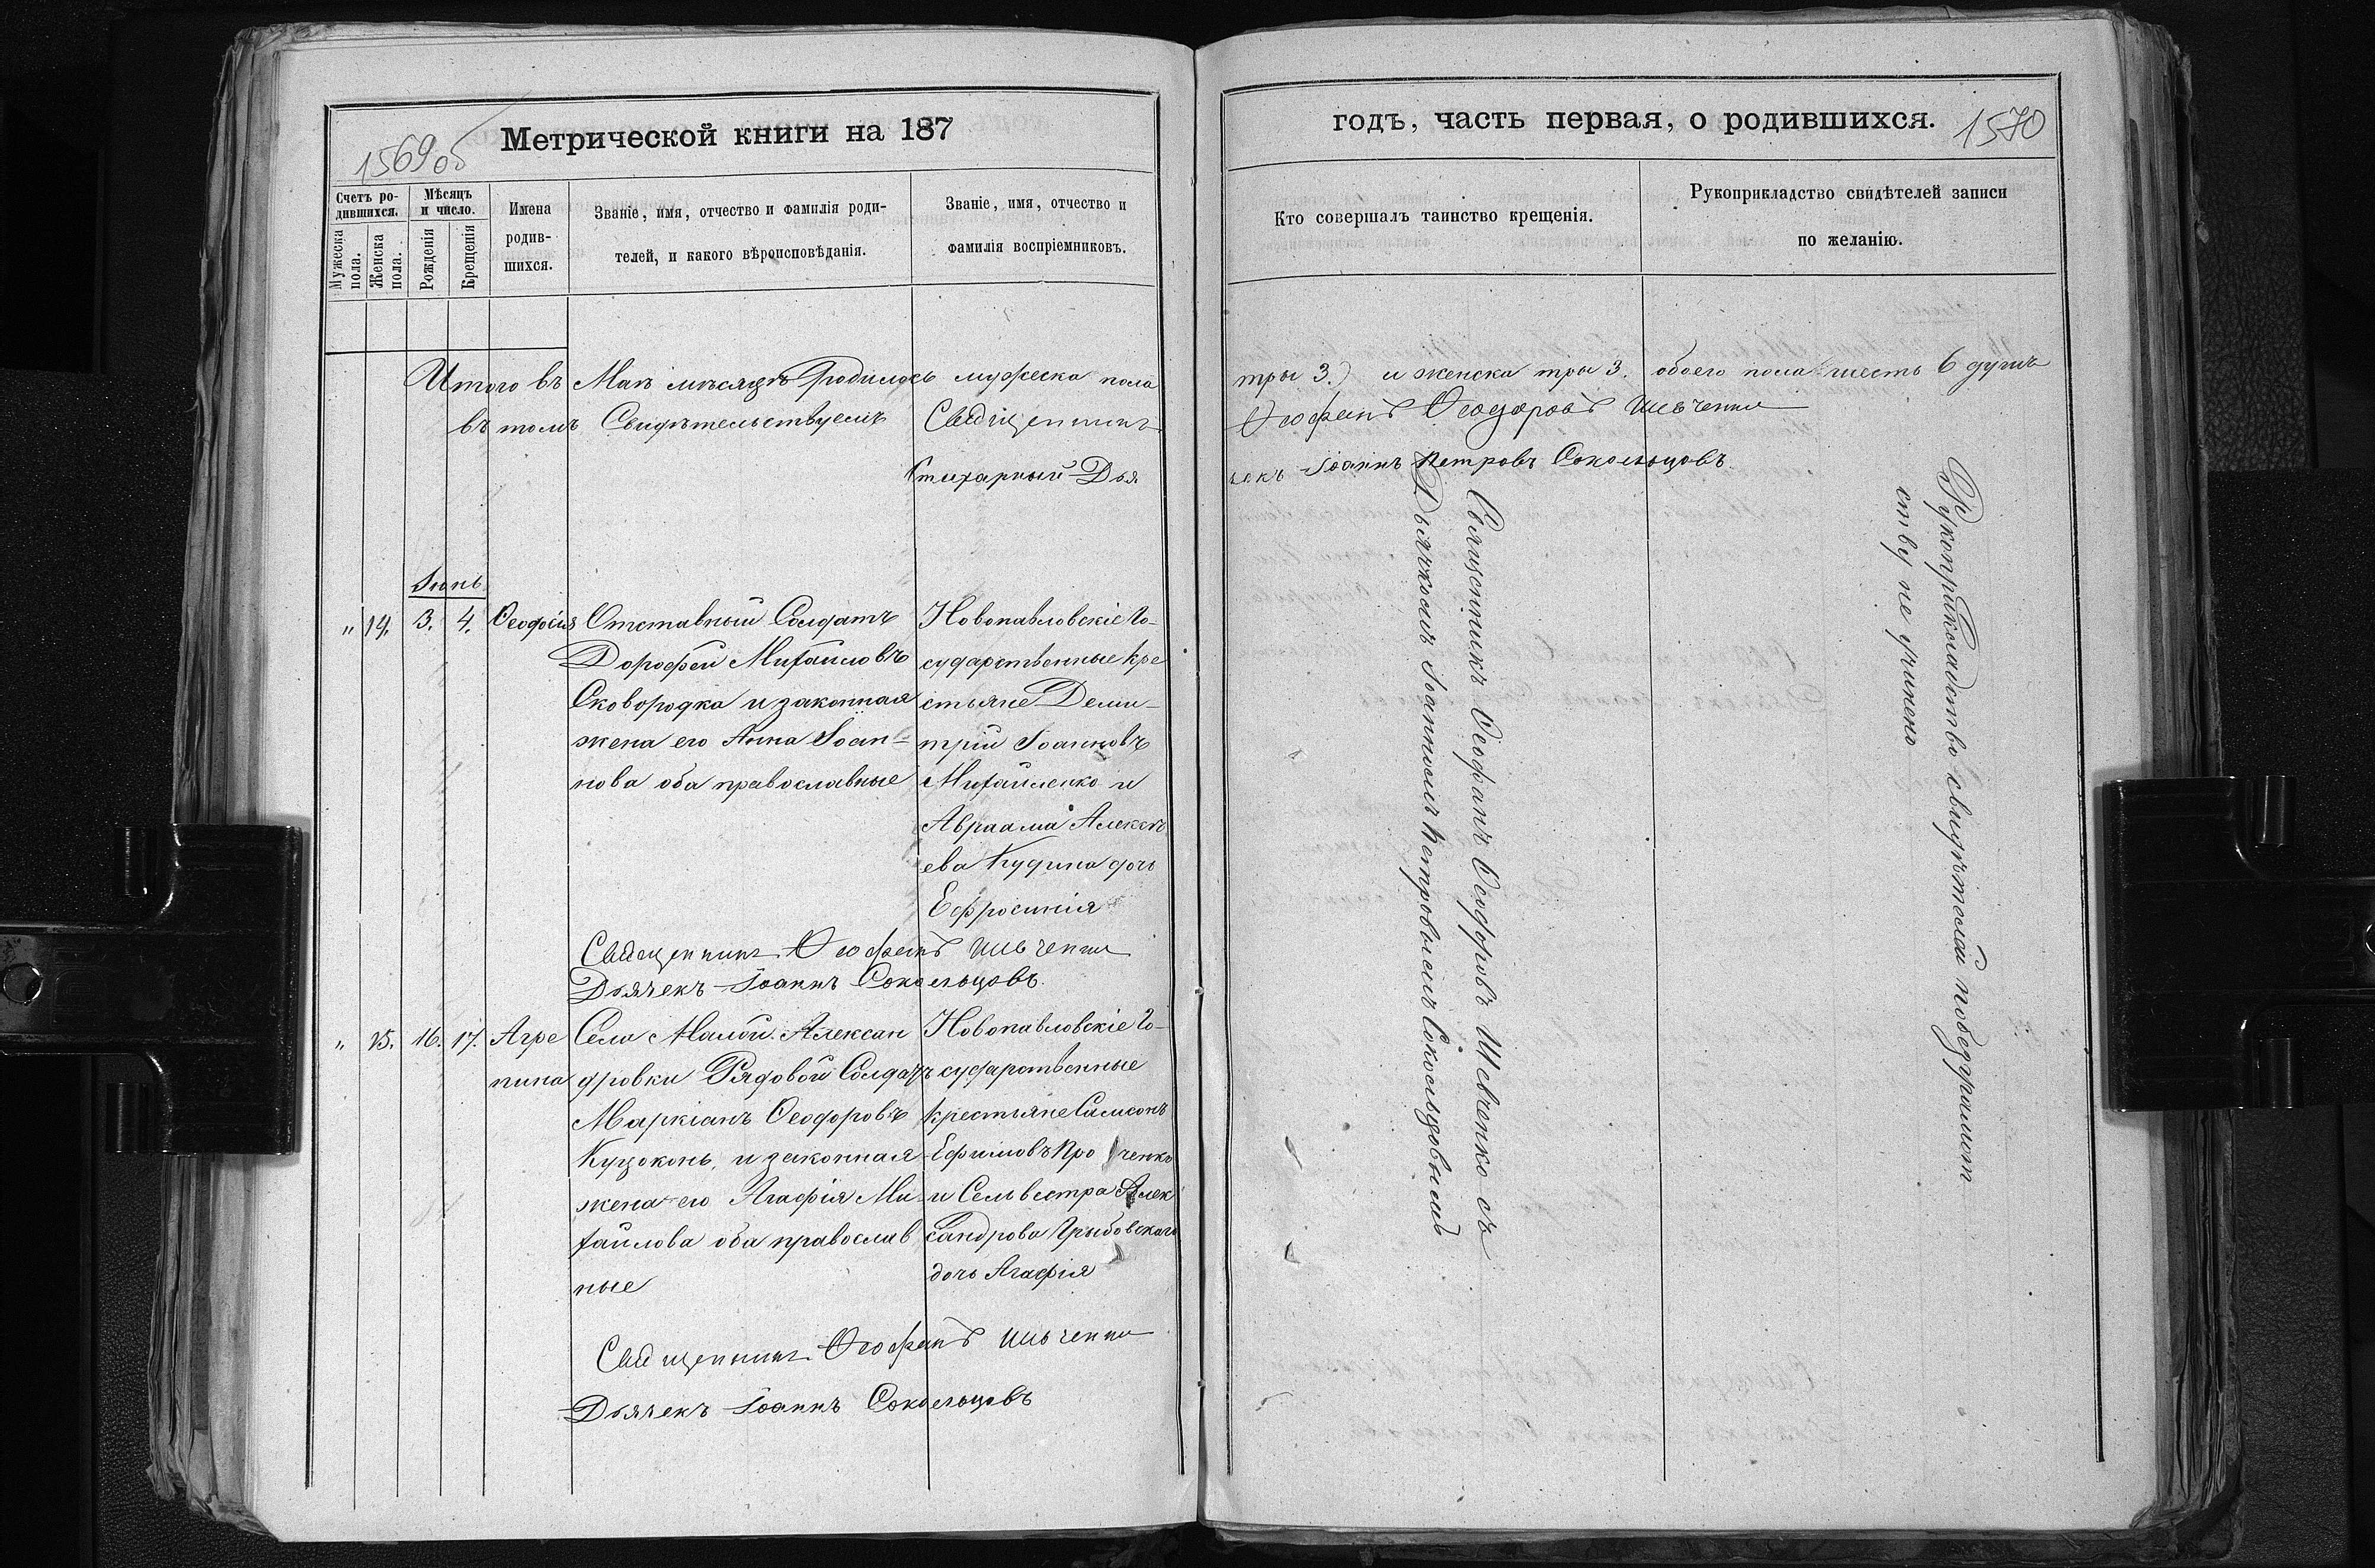 1569об
Метрической книги на 187
Счетъ ро-
дившихся.
Мѣсяцъ
и число.
Мужеска
пола.
Женска
пола.
Рожденія
Крещенія
Имена
родив-
шихся.
Званіе, имя, отчество и фамилія роди-
телей, и какого вѣроисповѣданія.
Званіе, имя, отчество и
фамилія воспріемниковъ.
Итого въ Маѣ мѣсяцѣ Родилось мужеска пола
въ томъ Свидѣтельствуемъ Священникъ
Стихарный Дья
Іюнь
" 14. 3. 4. Ѳеодосія
Отставной Солдатъ
Дорофей Михайловъ
Сковородка и законная
жена его Анна Іоан-
нова оба православные
Новопавловскіе Го-
сударственные кре
стьяне Дими-
трій Іоанновъ
Михайленко и
Авраама Алексѣ
ева Кудина дочь
Ефросинія
Священникъ Ѳеофанъ Шевченко
Дьячекъ Іоаннъ Сокольцовъ.
" 15. 16. 17. Агре
пина
Села Малой Алексан
дровки Рядовой Солдатъ
Маркіанъ Ѳеодоровъ
Куцоконь, и законная
жена его Агафія Ми-
хайлова оба православ
ные
Новопавловскіе Го-
сударственные
крестьяне Самсонъ
Ефимовъ Про ченко
и Сельвестра Алек
сандрова Грибовскаго
дочь Агафія
Священникъ Ѳеофанъ Шевченко
Дьячекъ Іоаннъ Сокольцовъ
годъ, часть первая, о родившихся.
1570
Кто совершалъ таинство крещенія.
Рукоприкладство свидѣтелей записи
по желанію.
три 3.) и женска три 3. обоего пола шесть 6 душъ
Ѳеофанъ Ѳеодоровъ Шевченко
чекъ Іоаннъ Петровъ Сокольцовъ.
Священникъ Ѳеофанъ Ѳеодоровъ Шевченко съ
Дьячкомъ Іоанномъ Петровымъ Сокольцовымъ
Рукоприкладство свидѣтелей по безграмот
ству не учинено